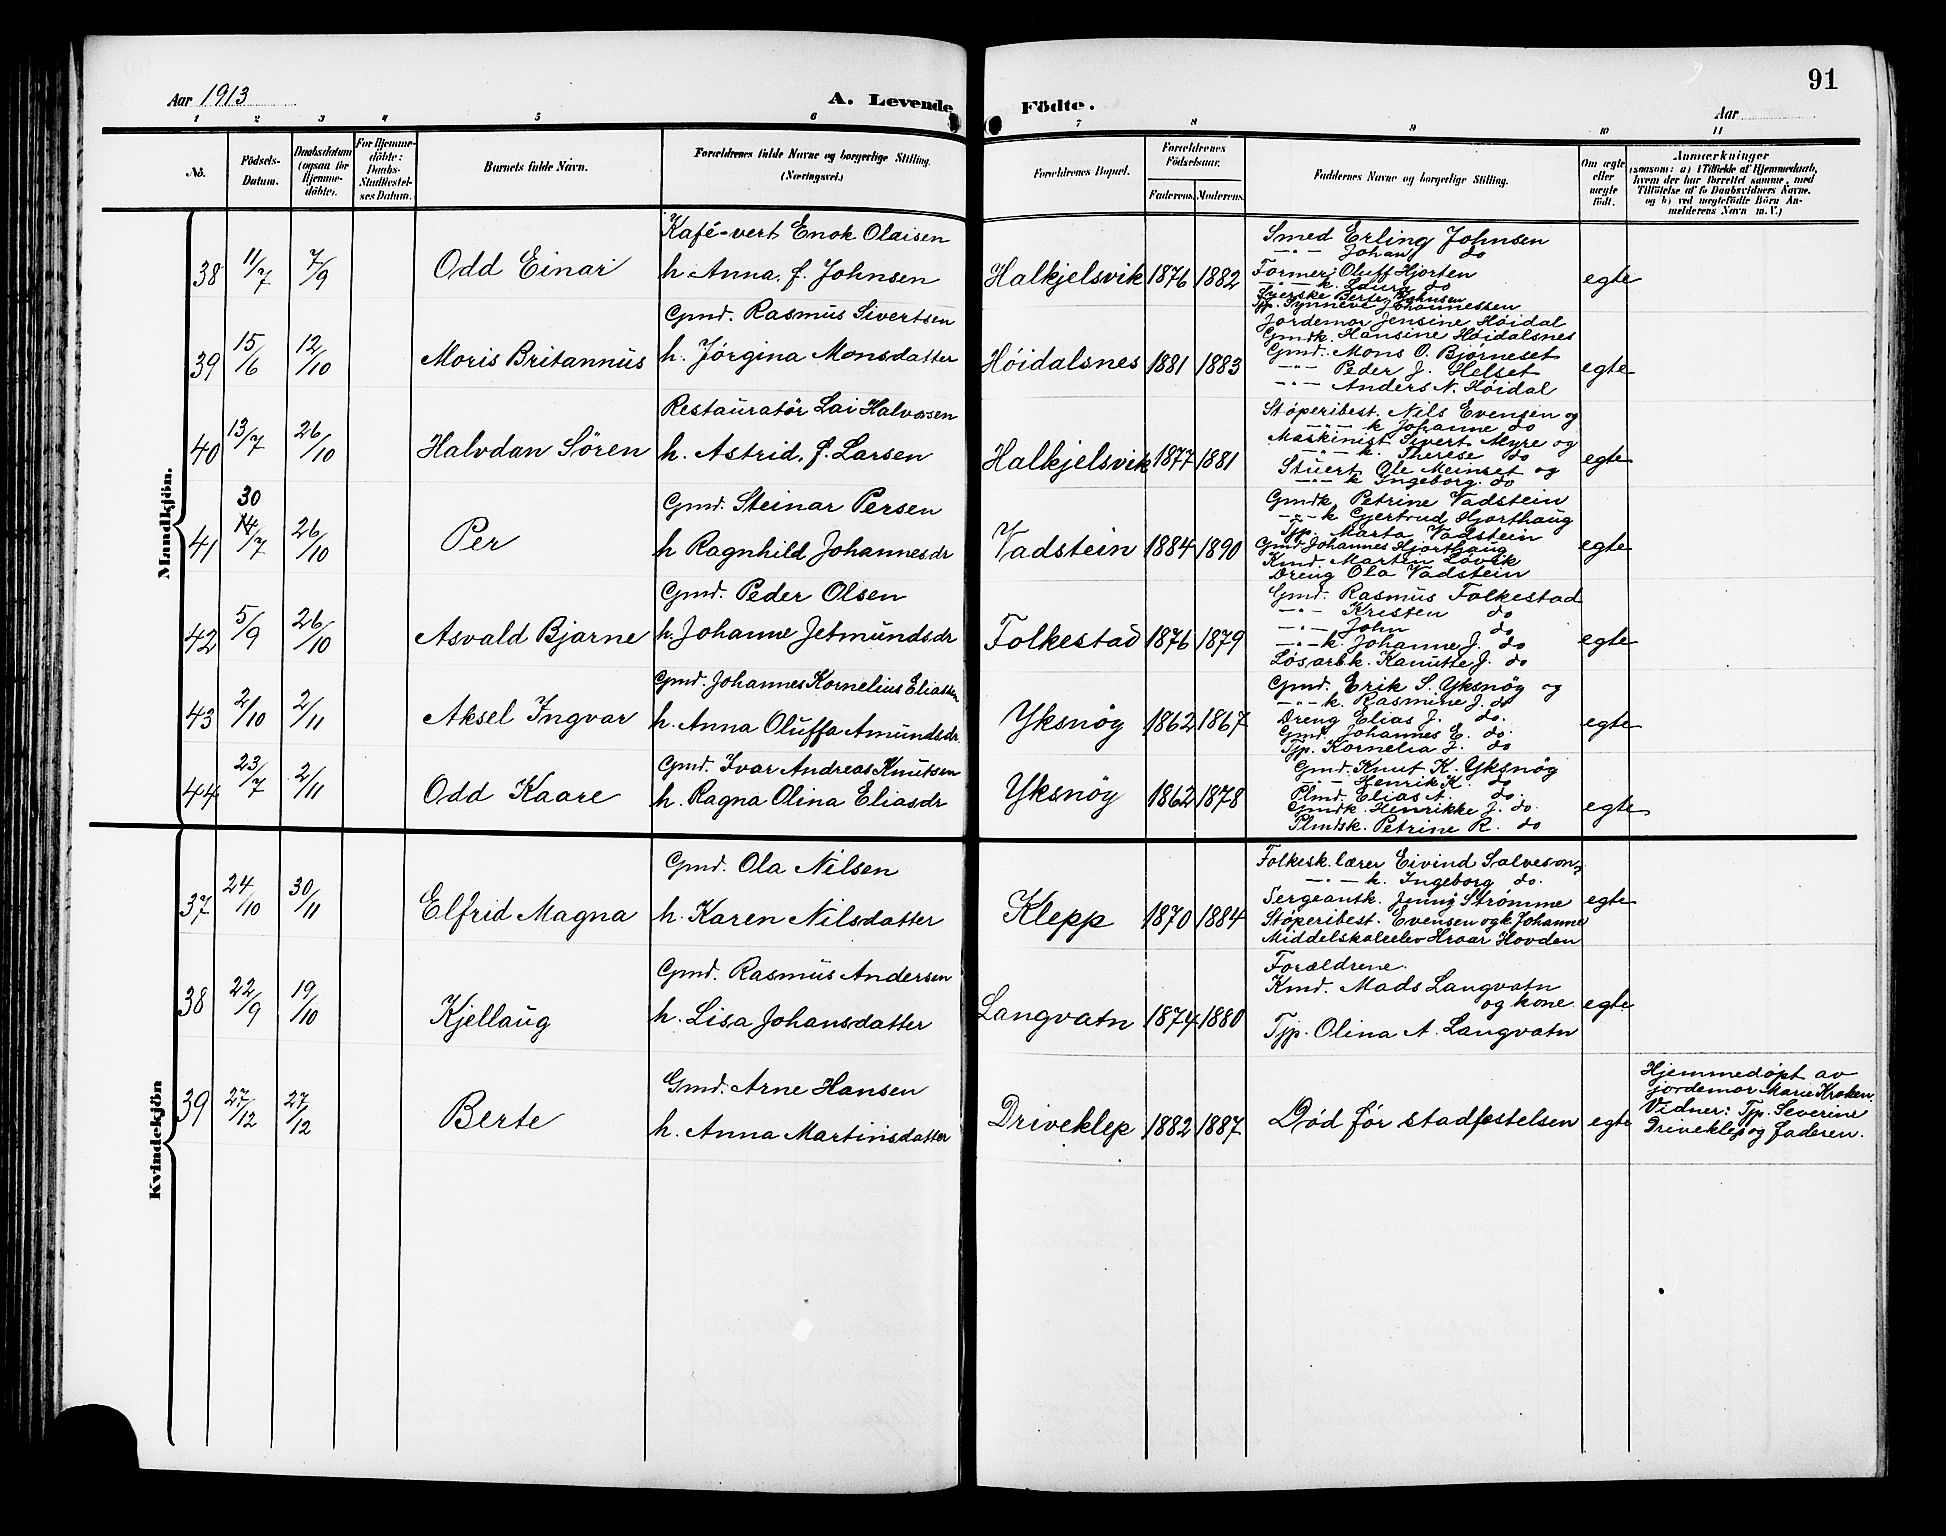 91
Aar 1913
A. Levende Födte.
Aar
1 2 3 4 5 6 7 8 9 10 11
No.
Födsels-Datum.
Daabsdatum (ogsaa for Hjemmedöbte).
For Hjemmedöbte: Daabs-Stadfæstelses Datum.
Barnets fulde Navn.
Forældrenes fulde Navne og borgerlige Stilling. (Næringsvei.)
Forældrenes Bopæl.
Forældrenes Födselsaar.
Faderens. Moderens.
Faddernes Navne og borgerlige Stilling.
Om ægte eller uægte födt.
Anmærkninger
(saasom: a) i Tilfælde af Hjemmedaab,
hvem der har forrettet samme, med
Tilföielse af to Daabsvidners Navne.
og b) ved uægtefödte Börn Anmelderens Navn m. V.)
Mandkjön.
38 11/7 7/9 Odd Einar
Kafé-vert Enok Olaisen
h Anna, f. Johnsen
Halkjelsvik 1876 1882
Smed Erling Johnsen
-"- Johan do
Former Oluff Hjorten
-"- k. Laura do
Berte Johnsen
Tjp. Synneve Johannessen
egte
39 15/6 12/10 Moris Britannus
Gmd. Rasmus Sivertsen
h. Jørgina Monsdatter
Høidalsnes 1881 1883
Jordemor Jensine Høidal
Gmdk. Hansine Høidalsnes
Gmd. Mons O. Bjørneset
-"- Peder J. Helset
-"- Anders N. Høidal
egte
40 13/7 26/10 Halvdan Sören
Restauratör Lai Halvorsen
h. Astrid, f. Larsen
Halkjelsvik 1877 1881
Støperibest. Nils Evensen og
-"- k Johanne do
Maskinist Sivert Myre og
-"- k. Therese do
Stuert Ole Meinset og
-"- k Ingeborg. do
egte
41 30 14/7 26/10 Per
Gmd. Steinar Persen
h Ragnhild Johannesdr
Vadstein 1884 1890
Gmdk Petrine Vadstein
-"- k Gjertrud Hjorthaug
Tjp. Marta Vadstein
Gmd Johannes Hjorthaug
Kmd. Marten Løvik
Dreng Ola Vadstein
egte
42 5/9 26/10 Asvald Bjarne
Gmd. Peder Olsen
h. Johanne Jetmundsdr
Folkestad 1876 1879
Gmd. Rasmus Folkestad
-"- Kristen do
-"- John do
-"- k. Johanne J. do
Løsarbk. Kanutte J. do
egte
43 2/10 2/11 Aksel Ingvar
Gmd. Johannes Kornelius Eliassen
h. Anna Oluffa Amundsdr.
Yksnøy 1862 1867
Gmd. Erik S. Yksnøy og
-"- k. Rasmine J. do
Dreng Elias J. do.
Gmd. Johannes E. do.
Tjp. Kornelia J. do
egte
44 23/7 2/11 Odd Kaare
Gmd. Ivar Andreas Knutsen
h. Ragna Olina Eliasdr
Yksnøy 1862 1878
Gmd. Knut K. Yksnøy
-"- Henrik K. do
Plmd. Elias A. do.
Gmdk. Henrikke J. do.
Plmdsk. Petrine R. do
egte
Kvindekjön
37 24/10 30/11 Elfrid Magna
Gmd. Ola Nilsen
h. Karen Nilsdatter
Klepp 1870 1884
Folkesk. lærer Eivind Salveson,
-"- k. Ingeborg do.
Sergeantk. Jenny Strømme
Støperibest. Evensen og k Johanne
Middelskoleelev Hroar Hovden
egte
38 22/9 19/10 Kjellaug
Gmd. Rasmus Andersen
h. Lisa Johansdatter
Langvatn 1874 1880
Forældrene.
Kmd. Mads Langvatn
og kone
Tjp. Olina A. Langvatn
egte
39 27/12 27/12 Berte
Gmd. Arne Hansen
h. Anna Martinsdatter
Driveklep 1882 1887
Død før stadfestelsen egte
Hjemmedöpt av
jordemor Marie Kroken.
Vidner: Tjp. Severine
Driveklep og faderen.